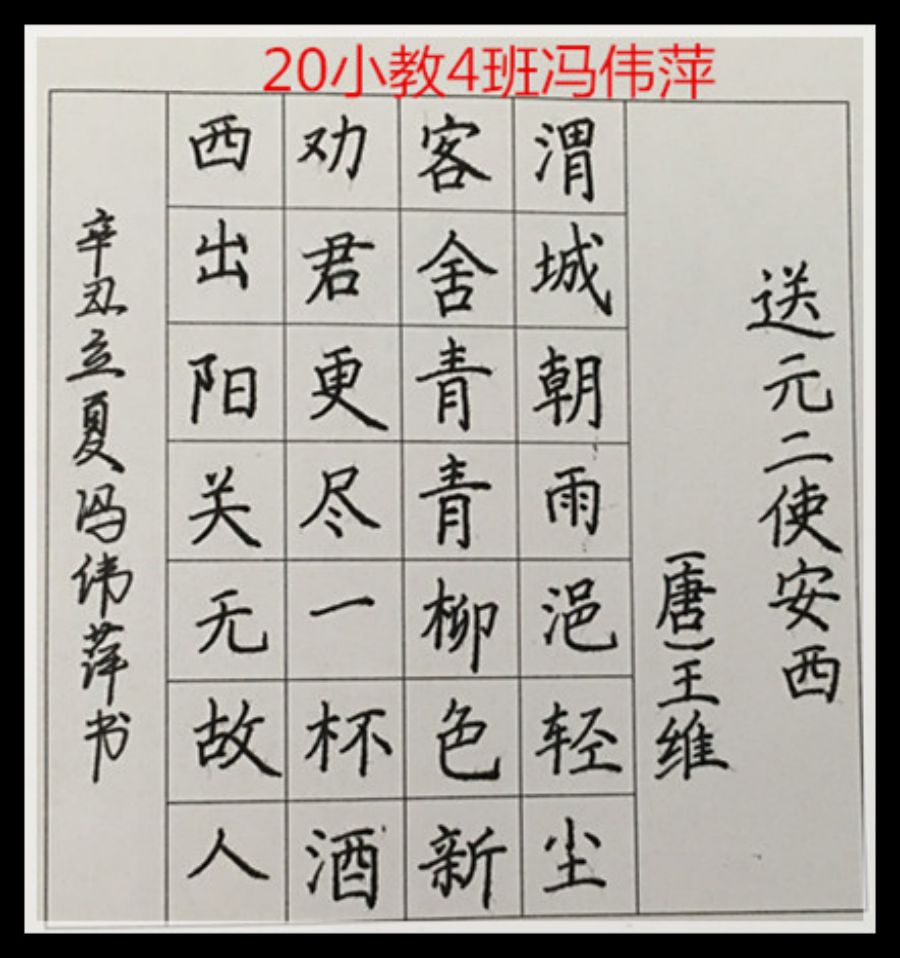 20小教4班冯伟萍
送元二使安西
(唐)王维
渭城朝雨浥轻尘
客舍青青柳色新
劝君更尽一杯酒
西出阳关无故人
辛丑立夏冯伟萍书